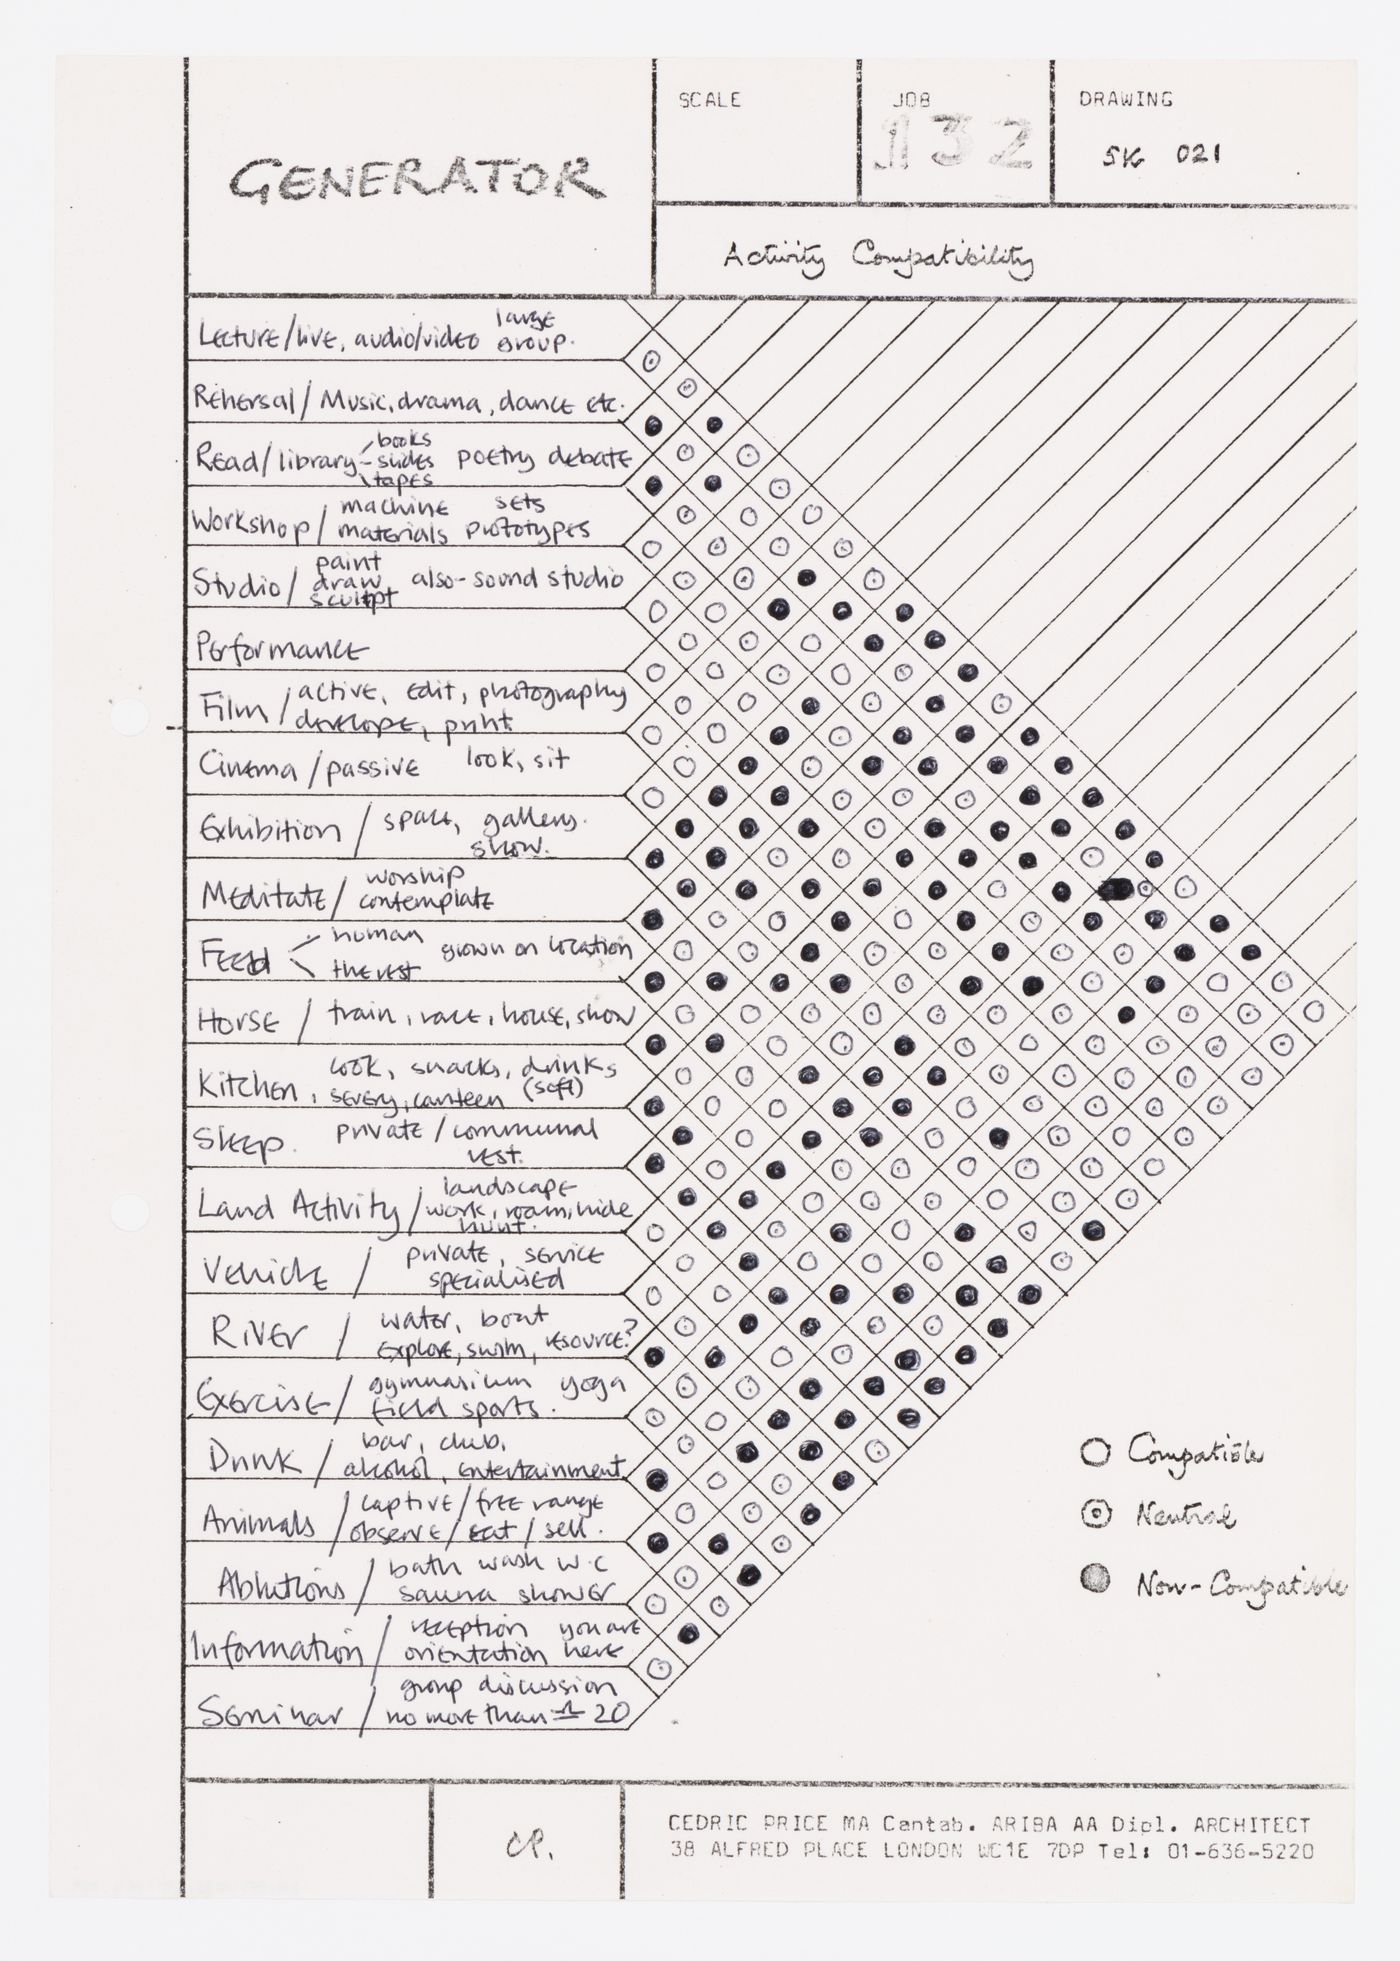 SCALE
JOB
DRAWING
132
SK 021
GENERATOR
Activity Compatibility
Lecture/live, audio/video large group.
Rehersal/ Music, drama, dance etc.
Read/library books slides tapes poetry debate
Workshop/ machine sets
materials prototypes
Studio/ paint draw sculpt also-sound studio
Performance
Film/ active, edit, photography
develope, print
Cinema/passive look, sit
Exhibition/ space, gallery.
show.
Meditate/ worship
contemplate
Feed human grown on location
the rest
Horse/ train, race, house, show
Kitchen, cook, snacks, drinks (soft)
severy, canteen
Sleep. private/communal
rest.
Land Activity/ landscape
work, roam, hide
hunt.
Vehicle/ private, service
specialised
River/ water, boat
explore, swim, resource?
Exercise/ gymnasium yoga
field sports.
Drink/ bar, club,
alcohol, entertainment
Animals/ captive/free range
observe/eat/sell.
Ablutions/ bath wash w.c
sauna shower
Information/ reception you are
orientation here
Seminar/ group discussion
no more than 20
Compatible
Neutral
Non-Compatible
CP.
CEDRIC PRICE MA Cantab. ARIBA AA Dipl. ARCHITECT
38 ALFRED PLACE LONDON WC1E 7DP Tel: 01-636-5220